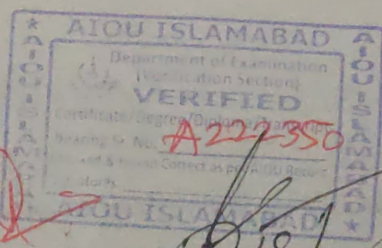 AIOU ISLAMABAD
Department of Examination
(Verification Section)
VERIFIED
Certificate/Degree/Diploma/Transcript
bearing Sr. No. A222350
Correct as per AIOU Record
AIOU ISLAMABAD
AIOU ISLAMABAD
AIOU ISLAMABAD